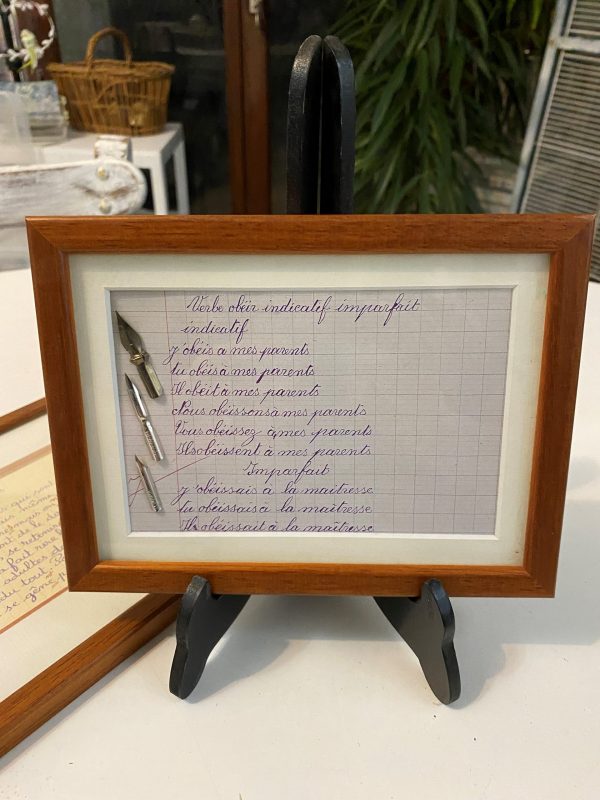 Verbe obéir indicatif imparfait
indicatif
j'obéis a mes parents
tu obéis à mes parents
Il obéit à mes parents
Nous obéissons à mes parents
Vous obéissez à mes parents
Ils obéissent à mes parents
Imparfait
j'obéissais à la maitresse
tu obéissais à la maîtresse
Il obéissait à la maîtresse
que
adultes
du tout
se gêne